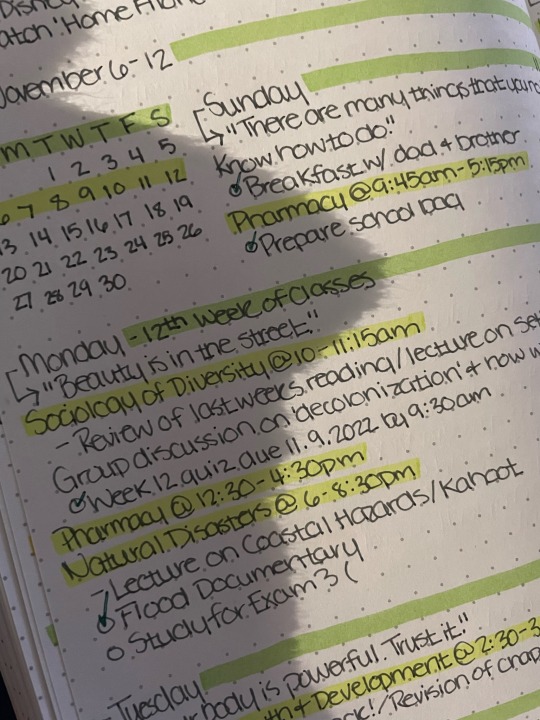 Disney
Watch 'Home Alone
November 6-12
M T W T F S
1 2 3 4 5
6 7 8 9 10 11 12
13 14 15 16 17 18 19
20 21 22 23 24 25 26
27 28 29 30
Sunday
"There are many things that you
know how to do."
Breakfast w/ dad + brother
Pharmacy @ 9:45am-5:15pm
Prepare school bag
Monday - 12th week of classes
"Beauty is in the street."
Sociology of Diversity @ 10-11:15am
- Review of last weeks reading/lecture on
Group discussion on 'decolonization' + how
Week 12 quiz due 11.9.2022 by 9:30am
Pharmacy @ 12:30-4:30pm
Natural Disasters @ 6-8:30pm
- Lecture on Coastal Hazards/Kahoot
Flood Documentary
Study for Exam 3 (
Tuesday
body is powerful. Trust it."
+ Development @ 2:30-3
/Revision of chap